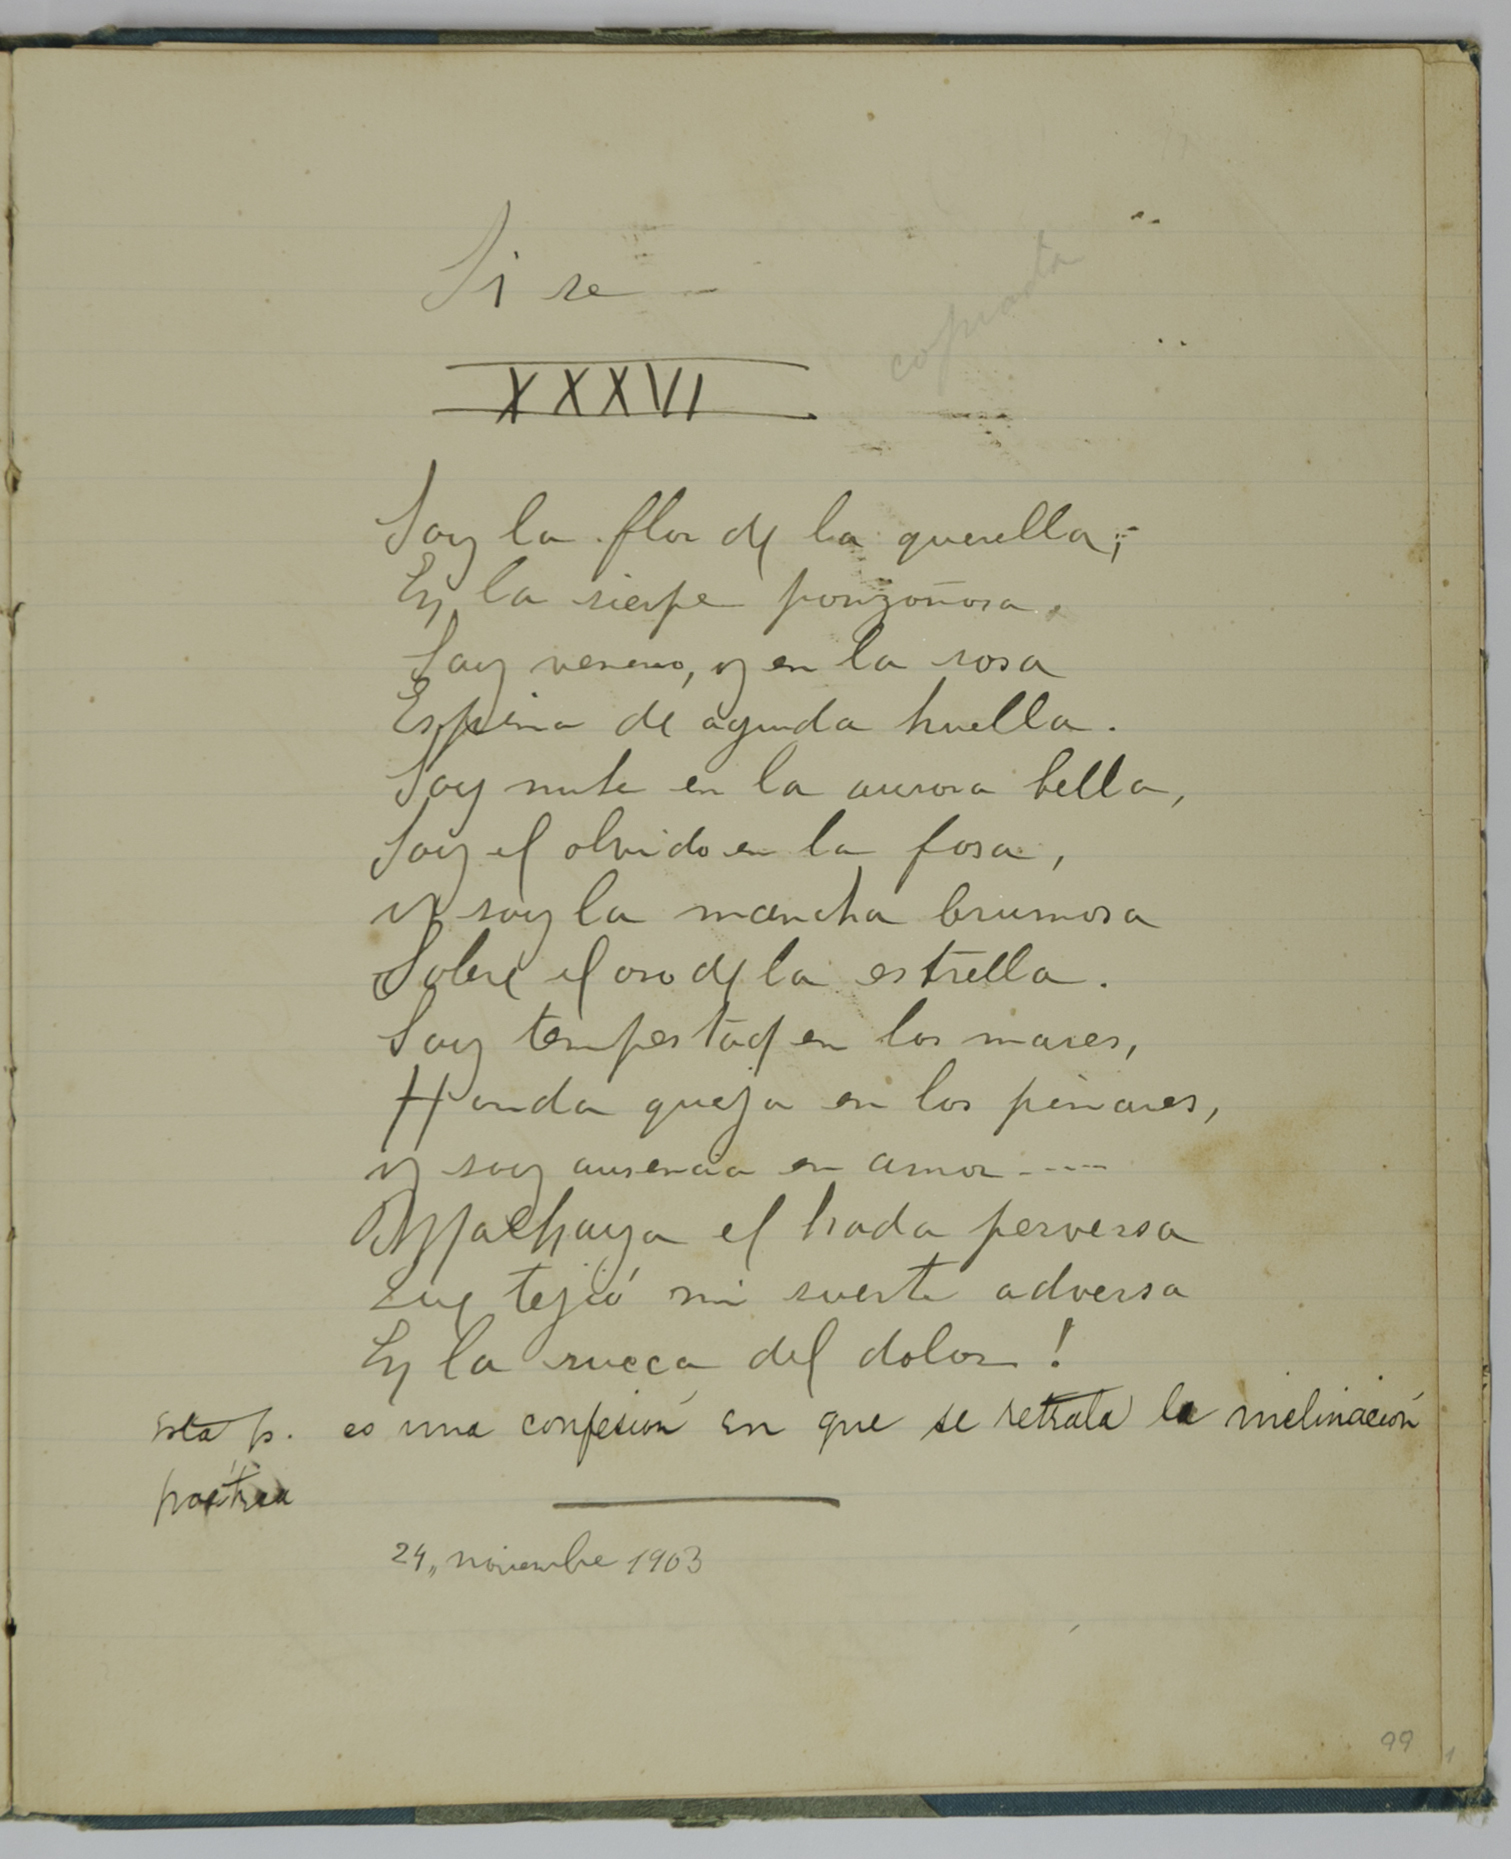 Si se —
copiada
XXXVI
Soy la flor de la querella;
En la sierpe ponzoñosa
Soy veneno, y en la rosa
Espina de aguda huella.
Soy nube en la aurora bella,
Soy el olvido en la fosa,
y soy la mancha brumosa
Sobre el oro de la estrella.
Soy tempestad en los mares,
Honda queja en los pinares,
y soy ausencia en amor ----
Malhaya el hada perversa
Que tejió mi suerte adversa
En la rueca del dolor!
Esta p. es una confesión en que se retrata la inclinación
poética
24, noviembre 1903
99
1